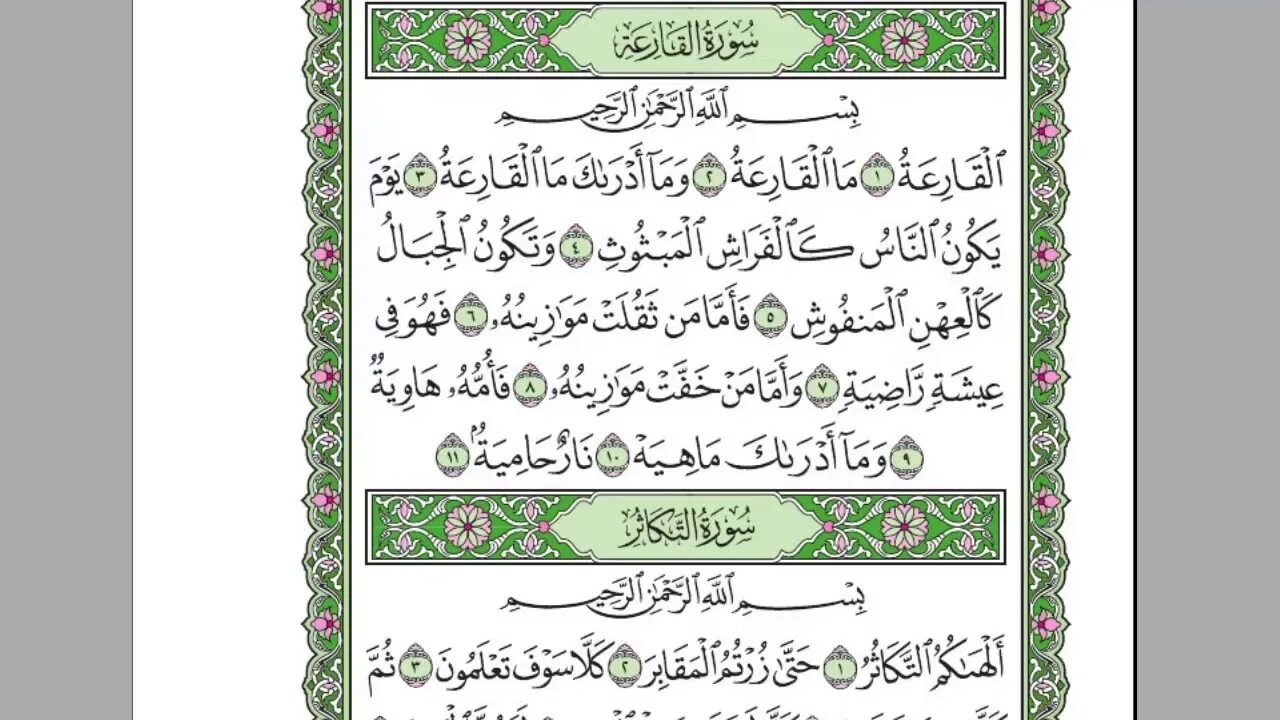 سُورَةُ القَارِعَةِ
بِسْمِ ٱللَّهِ ٱلرَّحْمَٰنِ ٱلرَّحِيمِ
ٱلْقَارِعَةُ ١ مَا ٱلْقَارِعَةُ ٢ وَمَآ أَدْرَىٰكَ مَا ٱلْقَارِعَةُ ٣ يَوْمَ
يَكُونُ ٱلنَّاسُ كَٱلْفَرَاشِ ٱلْمَبْثُوثِ ٤ وَتَكُونُ ٱلْجِبَالُ
كَٱلْعِهْنِ ٱلْمَنفُوشِ ٥ فَأَمَّا مَن ثَقُلَتْ مَوَٰزِينُهُۥ ٦ فَهُوَ فِى
عِيشَةٍ رَّاضِيَةٍ ٧ وَأَمَّا مَنْ خَفَّتْ مَوَٰزِينُهُۥ ٨ فَأُمُّهُۥ هَاوِيَةٌ
٩ وَمَآ أَدْرَىٰكَ مَا هِيَهْ ١٠ نَارٌ حَامِيَةٌۢ ١١
سُورَةُ التَّكَاثُرِ
بِسْمِ ٱللَّهِ ٱلرَّحْمَٰنِ ٱلرَّحِيمِ
أَلْهَىٰكُمُ ٱلتَّكَاثُرُ ١ حَتَّىٰ زُرْتُمُ ٱلْمَقَابِرَ ٢ كَلَّا سَوْفَ تَعْلَمُونَ ٣ ثُمَّ